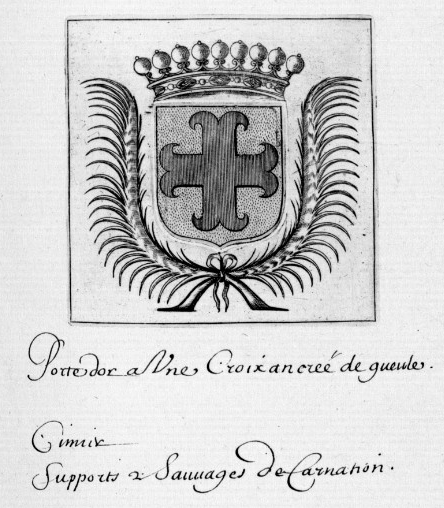 Porte dor a Vne Croix ancreé de gueule.
Cimier
Supports 2 Sauuages de Carnation.